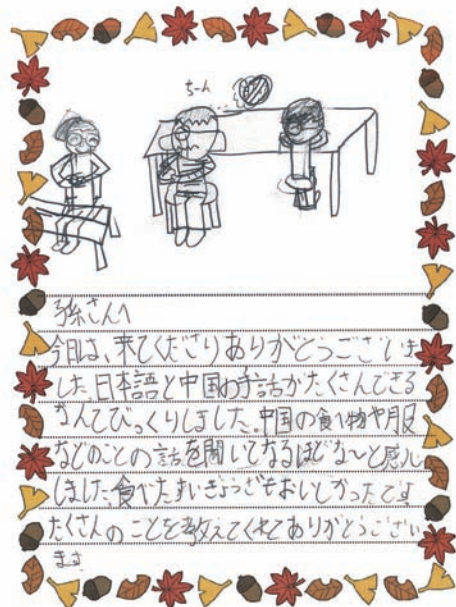 ちーん
孫さんへ
今日は、来てくださりありがとうございま
した。日本語と中国の手話がたくさんできる
なんてびっくりしました。中国の食べ物や服
などのことの話を聞いてなるほどな〜と感心
しました。食べたすいぎょうざもおいしかったです
たくさんのことを教えてくれてありがとうござい
ます